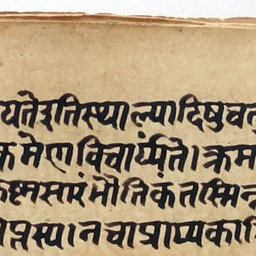 यतेइतिस्थाल्यादिषुवत
क्रमेणविचार्य्यते।क्रम
कृष्णसारंभौतिकंतस्मिन्
प्राप्तस्य।नचाप्राप्यकारि